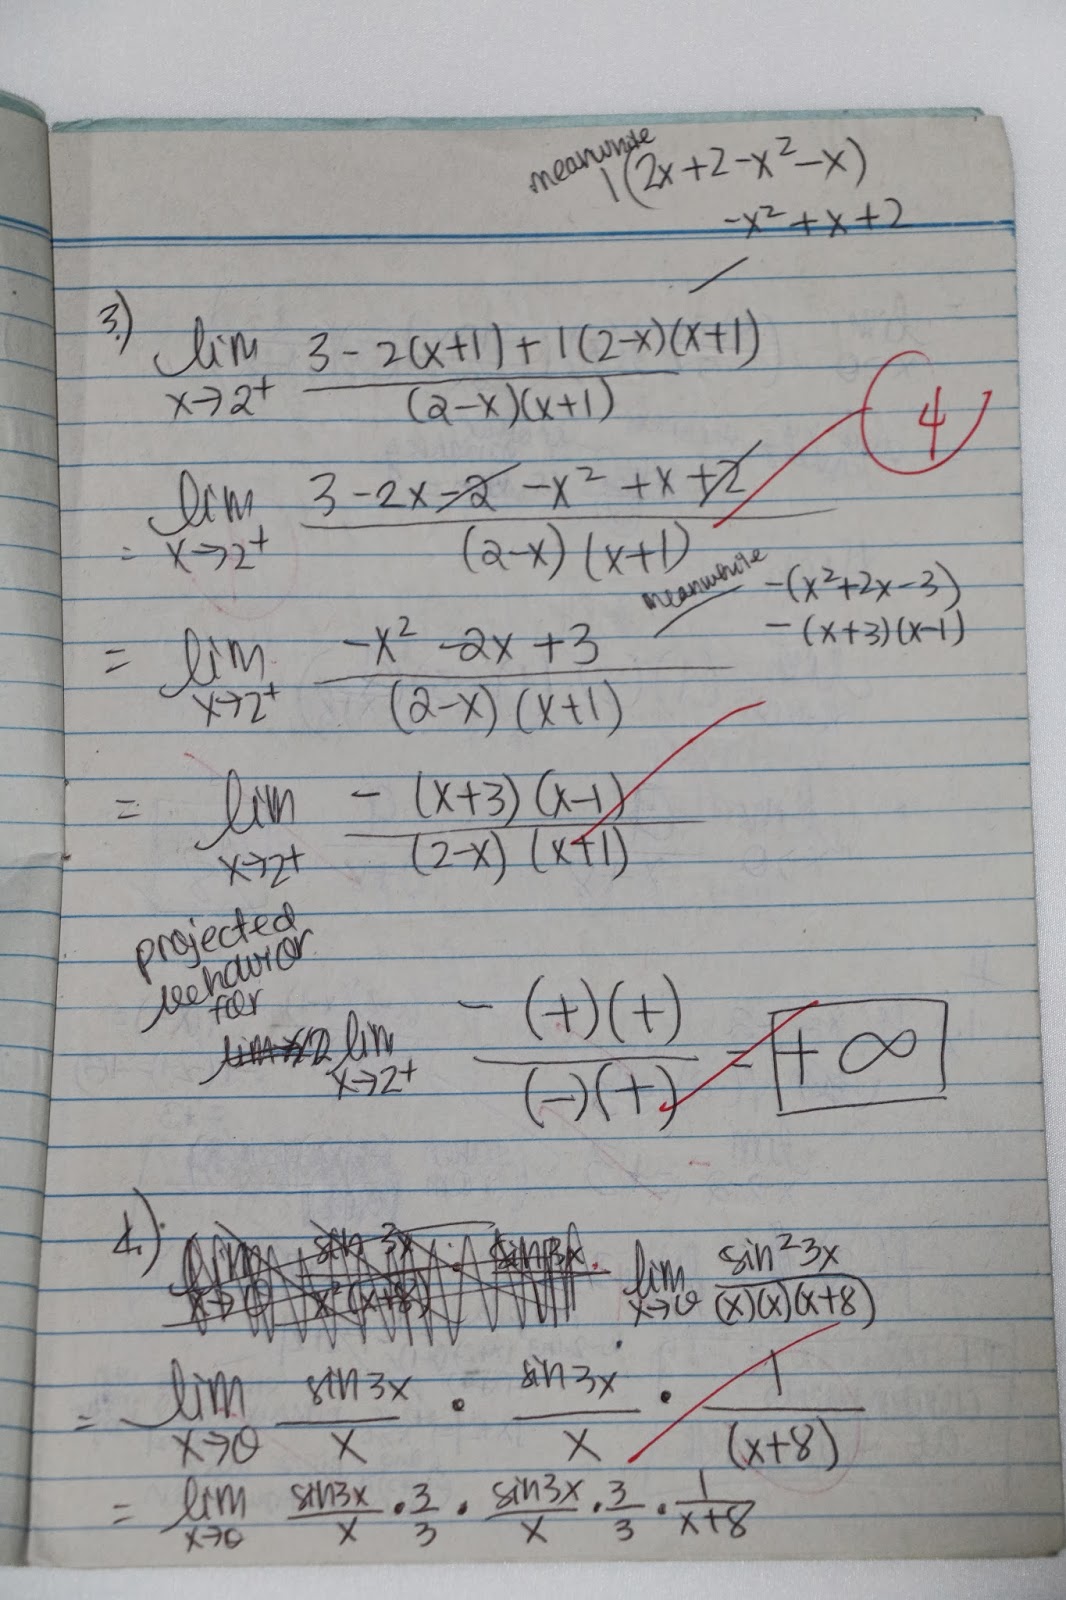 meanwhile 1(2x+2-x²-x)
-x²+x+2
3.) lim x→2⁺ 3-2(x+1)+1(2-x)(x+1) / (2-x)(x+1)
4
= lim x→2⁺ 3-2x-2-x²+x+2 / (2-x)(x+1)
meanwhile -(x²+2x-3)
-(x+3)(x-1)
= lim x→2⁺ -x²-2x+3 / (2-x)(x+1)
= lim x→2⁺ -(x+3)(x-1) / (2-x)(x+1)
projected
behavior
for
lim x→2⁺ -(+)(+) / (-)(+) = +∞
4.) lim x→0 sin²3x / (x)(x)(x+8)
= lim x→0 sin3x / x · sin3x / x · 1 / (x+8)
= lim x→0 sin3x / x · 3/3 · sin3x / x · 3/3 · 1 / x+8